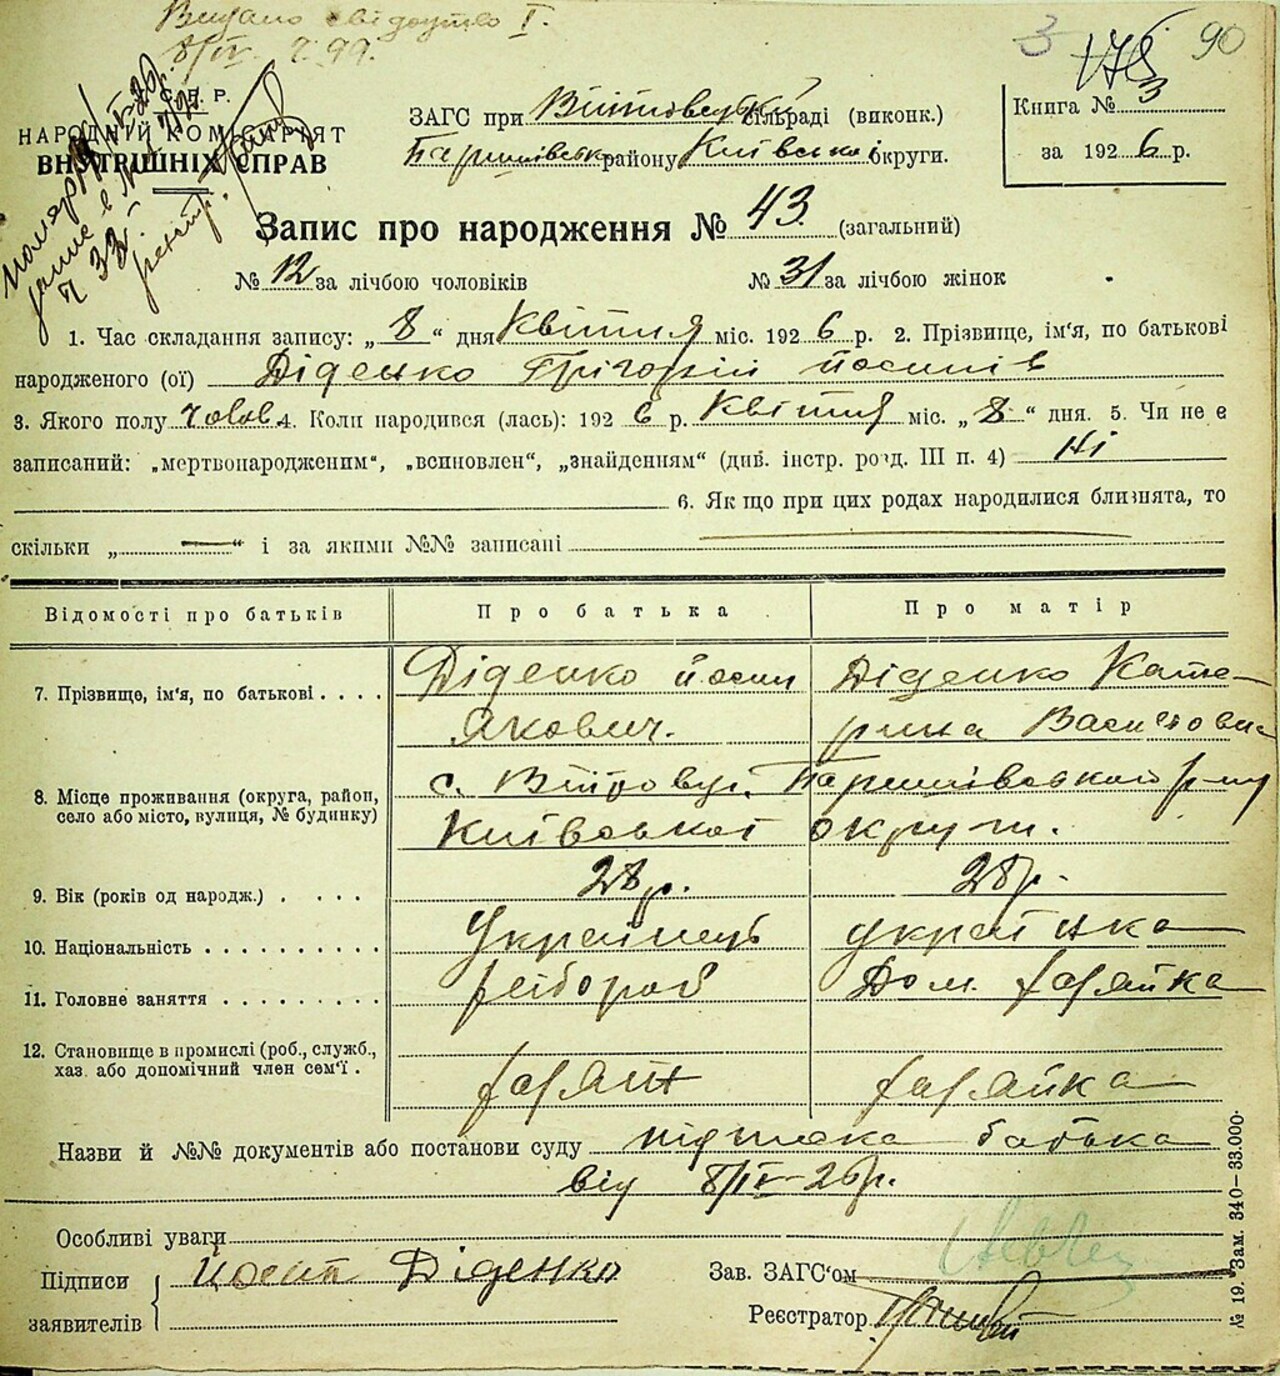 Видано свідоцтво І.
8/IV
3 176 90
У. С. Р. Р.
НАРОДНІЙ КОМІСАРІЯТ
ВНУТРІШНІХ СПРАВ
ЗАГС при Війтовецькій сільраді (виконк.)
Баришівськ. району Київської округи.
Книга № 3
за 1926 р.
Запис про народження № 43. (загальний)
№ 12 за лічбою чоловіків № 31 за лічбою жінок
1. Час складання запису: „ 8 “ дня Квітня міс. 1926 р. 2. Прізвище, ім'я, по батькові
народженого (ої) Діденко Грігорій Йосипів
3. Якого полу чолов. 4. Коли народився (лась): 1926 р. Квітня міс. „ 8 “ дня. 5. Чи не є
записаний: „мертвонародженим“, „всиновлен“, „знайденням“ (див. інстр. розд. III п. 4) Ні
6. Якщо при цих родах народилися близнята, то
скільки „ — “ і за якими №№ записані
Відомості про батьків Про батька Про матір
7. Прізвище, ім'я, по батькові . . . . Діденко Йосип Діденко Кате-
Якович. рина Васильовна
8. Місце проживання (округа, район, село або місто, вулиця, № будинку) с. Війтовці. Баришівського р-ну
Київської округи.
9. Вік (років од народж.) . . . . . 28 р. 28 р.
10. Національність . . . . . . . . . . Українець українка
11. Головне заняття . . . . . . . . . хлібороб Дом. хазяйка
12. Становище в промислі (роб., служб.,
хаз. або допомічний член сем'ї . хазяїн хазяйка
Назви й №№ документів або постанови суду підписка батька
від 8/IV-26 р.
Особливі уваги
Підписи Йосип Діденко
заявителів
Зав. ЗАГС'ом
Реєстратор
№ 19. Зам. 340–33.000.